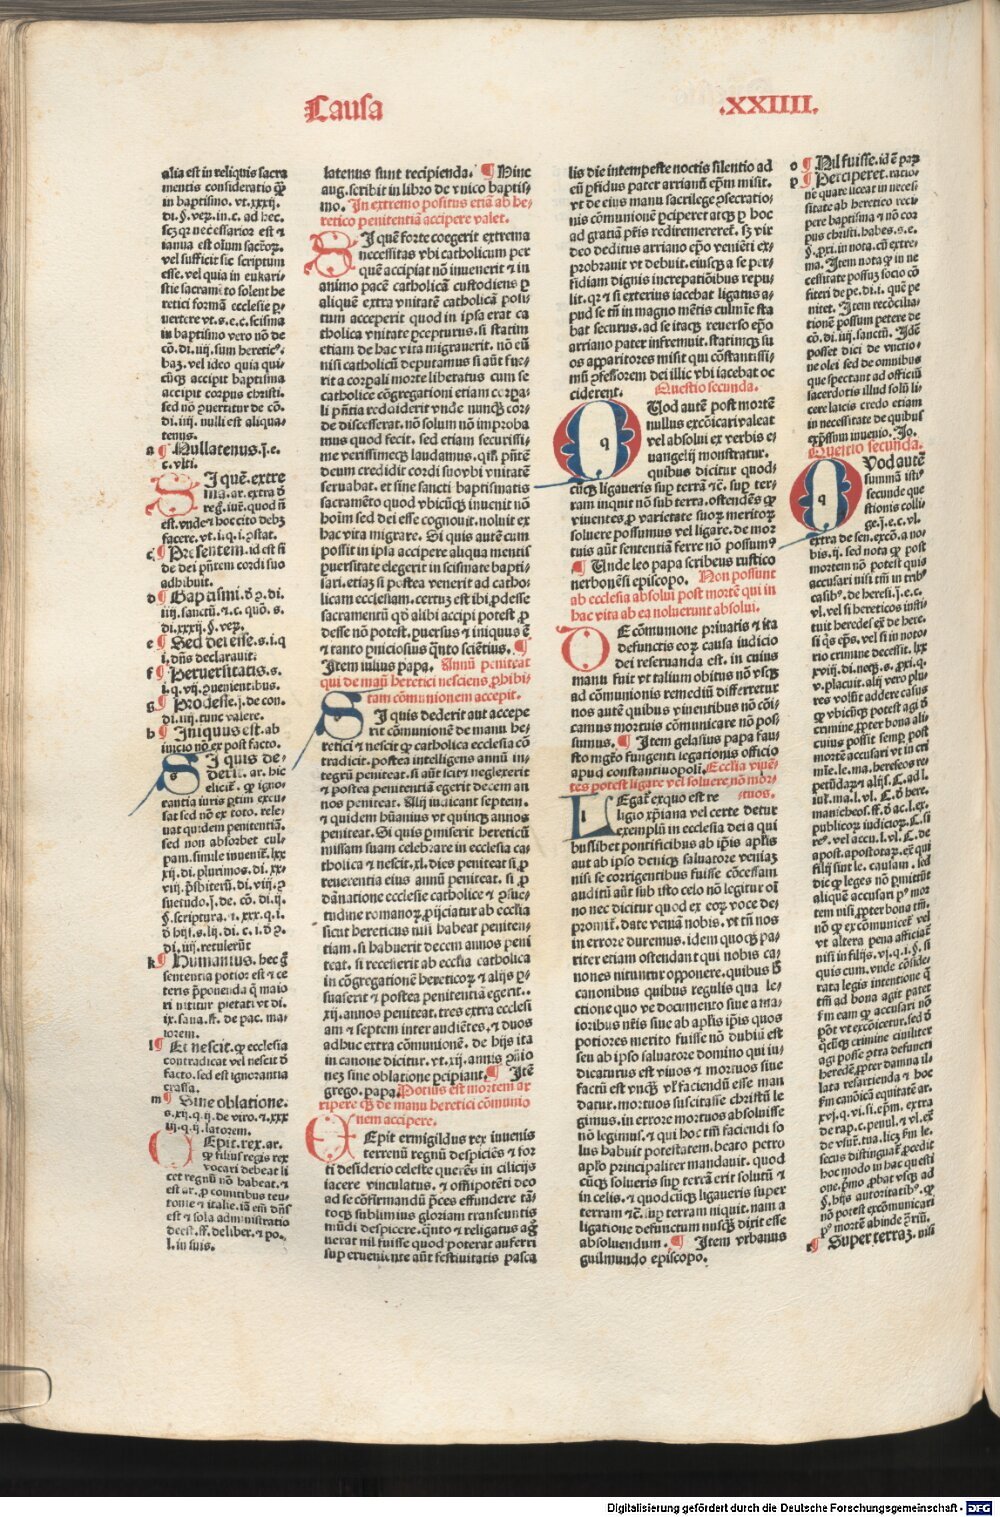 Causa
.XXIIII.
alia est in reliquis sacra
mentis consideratio qƺ
in baptismo. vt. xxxij.
ianua est oium sacroꝝ.
vel sufficit sic scriptum
esse. vel quia in eukari-
stie sacramēto solent he
retici formā ecclesie ꝑ-
uertere vt. s. e. c. scisma
in baptismo vero nō de
cō. di. iiij. sum heretic⁹.
baƺ. vel ideo quia qui-
cūqƺ accipit baptisma
accipit corpus christi.
sed nō ꝯuertitur de cō.
di. iiij. nulli est aliqua-
tenus.
a ¶ Nullatenus. j. e.
c. vlti.
S I quē. extre
ma. ar. extra ď
est. vnde hoc cito debƺ
facere. vt. i. q. i. ꝯstat.
c ¶ Presentem. id est fi
de dei pn̄tem cordi suo
adhibuit.
d ¶ Baptismi. ď ꝯ. di.
iiij. sanctū. ⁊. c. quō. s.
e ¶ Sed dei esse. s. i. q
i. dn̄s declarauit.
f ¶ Peruersitatis. s.
i. q. vij. ꝯuenientibus.
g ¶ Prodesse. j. de con.
di. iiij. tunc valere.
h ¶ Iniquus est. ab
inicio nō ex post facto.
S I quis de-
derit. ar. hic
elicit̄. ꝙ igno-
rantia iuris ꝑtim excu-
sat sed nō ex toto. rele-
uat quidem penitentiā.
sed non absorbet cul-
pam. simile inuenit̄. lxx
xij. di. plurimos. di. xx-
viij. p̄sbiterū. di. viij. ꝯ
suetudo. j. de. cō. di. ij.
§. scriptura. ⁊. xxx. q. i.
di. iiij. retulerūt
k ¶ Humanius. hec ē
sententia potior est ⁊ ce
teris p̄ponenda q̄ maio
ri nititur pietati vt di.
ix. sana. ff. de pac. ma-
iorem.
l ¶ Et nescit. ꝙ ecclesia
contradicat vel nescit ď
facto. sed est ignorantia
crassa.
m ¶ Sine oblatione.
s. xij. q. ij. de viro. ⁊. xxx
iij. q. ij. latorem.
C Epit. rex. ar.
ꝙ filius regis rex
vocari debeat li
cet regnū nō habeat. ⁊
est ar. ꝙ comitibus teu-
tonie ⁊ italie. iā em̄ dn̄s
est ⁊ sola administratio
deest. ff. de liber. ⁊ po.
l. in suis.
latenus sunt recipienda. ¶ Hinc
aug. scribit in libro de vnico baptis-
mo. In extremo positus etiā ab he-
retico penitentiā accipere valet.
S I quē forte coegerit extrema
necessitas vbi catholicum per
quē accipiat nō inuenerit ⁊ in
animo pacē catholicā custodiens ꝑ
aliquē extra vnitatē catholicā posi
tum acceperit quod in ipsa erat ca
tholica vnitate ꝑcepturus. si statim
etiam de hac vita migrauerit. nō eū
nisi catholicū deputamus si aūt fue-
rit a corꝑali morte liberatus cum se
catholice cōgregationi etiam corꝑa-
li pn̄tia reddiderit vnde nunqƺ cor-
de discesserat. nō solum nō improba
mus quod fecit. sed etiam securissi-
me verissimeqƺ laudamus. quia pn̄tē
deum credidit cordi suo vbi vnitatē
seruabat. et sine sancti baptismatis
sacramēto quod vbicūqƺ inuenit nō
hoīm sed dei esse cognouit. noluit ex
hac vita migrare. Si quis autē cum
possit in ipsa accipere aliqua mentis
ꝑuersitate elegerit in scismate bapti-
sari. etiaƺ si postea venerit ad catho-
licam ecclesiam. certuƺ est ibi ꝓdesse
sacramentū qď alibi accipi potest ꝓ
desse nō potest. ꝑuersus ⁊ iniquus ē
⁊ tanto ꝑniciosius quāto sciētius. ¶
Item iulius papa. Annū peniteat
qui de manu heretici nesciens ꝓhibi-
tam cōmunionem accepit.
S I quis dederit aut accepe
rit cōmunionē de manu he-
retici ⁊ nescit ꝙ catholica ecclesia cō
tradicit. postea intelligens annū in-
tegrū peniteat. si aūt scit ⁊ neglexerit
⁊ postea penitentiā egerit decem an
nos peniteat. Alij iudicant septem.
⁊ quidem hūanius vt quinqƺ annos
peniteat. Si quis ꝑmiserit hereticū
missam suam celebrare in ecclesia ca
tholica ⁊ nescit. xl. dies peniteat si ꝓ
reuerentia eius annū peniteat. si ꝓ
dānatione ecclesie catholice ⁊ ꝯsue-
tudine romanoꝝ. ꝓijciatur ab ecclīa
sicut hereticus nisi habeat peniten-
tiam. si habuerit decem annos peni
teat. si recesserit ab ecclīa catholica
in cōgregationē hereticoꝝ ⁊ alijs ꝑ-
suaserit ⁊ postea penitentiā egerit..
xij. annos peniteat. tres extra ecclesi
am ⁊ septem inter audiētes. ⁊ duos
adhuc extra cōmunionē. de hijs ita
in canone dicitur. vt. xij. annis p̄nio
neƺ sine oblatione ꝑcipiant. ¶ Itē
grego. papa. Potius est mortem ar
ripere qƺ de manu heretici cōmunio
nem accipere.
C Epit ermigildus rex iuuenis
terrenū regnū despiciēs ⁊ for
ti desiderio celeste querēs in cilicijs
iacere vinculatus. ⁊ oīpotēti deo
ad se cōfirmandū p̄ces effundere tā-
toqƺ sublimius gloriam transeuntis
mūdi despicere. quāto ⁊ religatus agn̄
uerat nil fuisse quod poterat auferri
superueniente aūt festiuitatis pasca
lis die intempeste noctis silentio ad
eū ꝑfidus pater arrianū ep̄m misit.
vt de eius manu sacrilege ꝯsecratio-
nis cōmunionē ꝑciperet atqƺ ꝑ hoc
ad gratiā pr̄is redire mereret̄. sƺ vir
deo deditus arriano ep̄o veniēti ex-
probrauit vt debuit. eiusqƺ a se per-
fidiam dignis increpatiōibus repu
lit. qr ⁊ si exterius iacebat ligatus a-
pud se tn̄ in magno mētis culmīe sta
bat securus. ad se itaqƺ reuerso ep̄o
arriano pater infremuit. statimqƺ su
os apparitores misit qui cōstantissi-
mū ꝓfessorem dei illic vbi iacebat oc
ciderent. Questio secunda.
Q Uod autē post mortē
nullus excōicari valeat
vel absolui ex verbis e
uangelij monstratur.
quibus dicitur quod-
cūqƺ ligaueris suꝑ terrā ⁊ē. suꝑ ter-
ram inquit nō sub terra. ostendēs ꝙ
viuentes ꝓ varietate suoꝝ meritoꝝ
soluere possumus vel ligare. de mor
tuis aūt sententiā ferre nō possum⁹
¶ Unde leo papa scribeus rustico
nerbonēsi episcopo. Non possunt
ab ecclesia absolui post mortē qui in
hac vita ab ea noluerunt absolui.
D E cōmunione priuatis ⁊ ita
defunctis eoꝝ causa iudicio
dei reseruanda est. in cuius
manu fuit vt talium obitus nō vsqƺ
ad cōmunionis remediū differretur
nos autē quibus viuentibus nō cōi-
camus mortuis cōmunicare nō pos-
sumus. ¶ Item gelasius papa fau-
sto mgr̄o fungenti legationis officio
apud constantinopoli. Ecclīa viuē-
tes potest ligare vel soluere nō mor-
tuos.
L Egat̄ ex quo est re
ligio xp̄iana vel certe detur
exemplū in ecclesia dei a qui
busliƺet pontificibus ab ip̄is apl̄is
aut ab ipso deniqƺ saluatore veniaƺ
nisi se corrigentibus fuisse cōcessam
auditū aūt sub isto celo nō legitur oī
no nec dicitur quod ex eoꝝ voce de-
promit̄. date veniā nobis. vt tn̄ nos
in errore duremus. idem quoqƺ pa-
riter etiam ostendant qui nobis ca-
nones nituntur opponere. quibus ħ
canonibus quibus regulis qua le-
ctione quo ve documento siue a ma-
ioribus nr̄is siue ab apl̄is ip̄is quos
potiores merito fuisse nō dubiū est
seu ab ipso saluatore domino qui iu-
dicaturus est viuos ⁊ mortuos siue
factū est vnqƺ vl̄ faciendū esse man
datur. mortuos suscitasse christū le
gimus. in errore mortuos absoluisse
nō legimus. ⁊ qui hoc tm̄ faciendi so
lus habuit potestatem. beato petro
apl̄o principaliter mandauit. quod
cūqƺ solueris suꝑ terrā erit solutū ⁊
in celis. ⁊ quodcūqƺ ligaueris super
terram ⁊ē. suꝑ terram inquit. nam a
ligatione defunctum nusqƺ dixit esse
absoluendum. ¶ Item vrbanus
guilmundo episcopo.
o ¶ Nil fuisse. id ē paꝝ
p ¶ Perciperet. ratio-
ne quare liceat in neces-
sitate ab heretico reci-
pere baptisma ⁊ nō cor
pus christi. habes. s. e.
§. ꝓxi. in nota. cū extre-
ma. Item nota ꝙ in ne
cessitate possuƺ socio cō
fiteri de pe. di. i. quē pe
nitet. Item recōcilia-
tionē possum petere de
cō. di. iiij. sanctū. Idē
posset dici de vnctio-
ne olei sed de omnibus
que spectant ad officiū
sacerdotis illud solū li-
cere laicis credo etiam
in necessitate de quibus
exp̄ssum inuenio. Jo.
Questio secunda.
Q Vod autē
summā isti⁹
secunde que
stionis colli-
ge. j. e. c. vl.
extra de sen. excō. a no-
bis. ij. sed nota ꝙ post
mortem nō potest quis
accusari nisi tm̄ in trib⁹
casib⁹. de heresi. j. e. c.
vl. vel si hereticos insti-
tuit heredes
rio crimine decessit. lxx
v. placuit. alij vero plu-
res volūt addere casus
ꝙ vbicūqƺ potest agi ď
crimine ꝓpter bona ali-
cuius possit semꝑ post
mortē accusari vt in cri
publicoꝝ iudicioꝝ. C. si
dic ꝙ leges nō ꝑmittūt
aliquē accusari p⁹ mor
tem nisi ꝓpter bona tm̄.
nō ꝙ excōmunicet̄ vel
vt altera pena afficiat̄
nisi in filijs. vj. q. i. §. si
quis cum. vnde cōside-
rata legis intentione q̄
tm̄ ad bona agit patet
pōt vt excōicetur. sed ď
agi posse ꝯtra defuncti
heredē. ꝓpter damna il-
lata resartienda ⁊ hoc
fm canōicā equitatē ar.
xvj. q. vi. si ep̄m. extra
de rap. c. penul. ⁊ vl. ex̄
secus distinguāt̄ ꝓcedit
hoc modo in hac questi
one. p̄mo ꝓbat vsqƺ ad
§. hijs autoritatib⁹. ꝙ
nō potest excōmunicari
p⁹ mortē abinde ꝯ̄riū.
r ¶ Super terraƺ. nisi
Digitalisierung gefördert durch die Deutsche Forschungsgemeinschaft - DFG